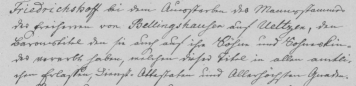 Friedrichshoff bei dem Aussterben des Mannsstammes
des Freiherrn von Bellingshausen auf Uettgen, den
Baronstitel den sie auch auf ihre Söhne und Sohneskin-
der vererbt haben, welchen dieser Titel in allen amtli-
chen Erlassen, Dienst-Attestaten und Allerhöchsten Gnaden-